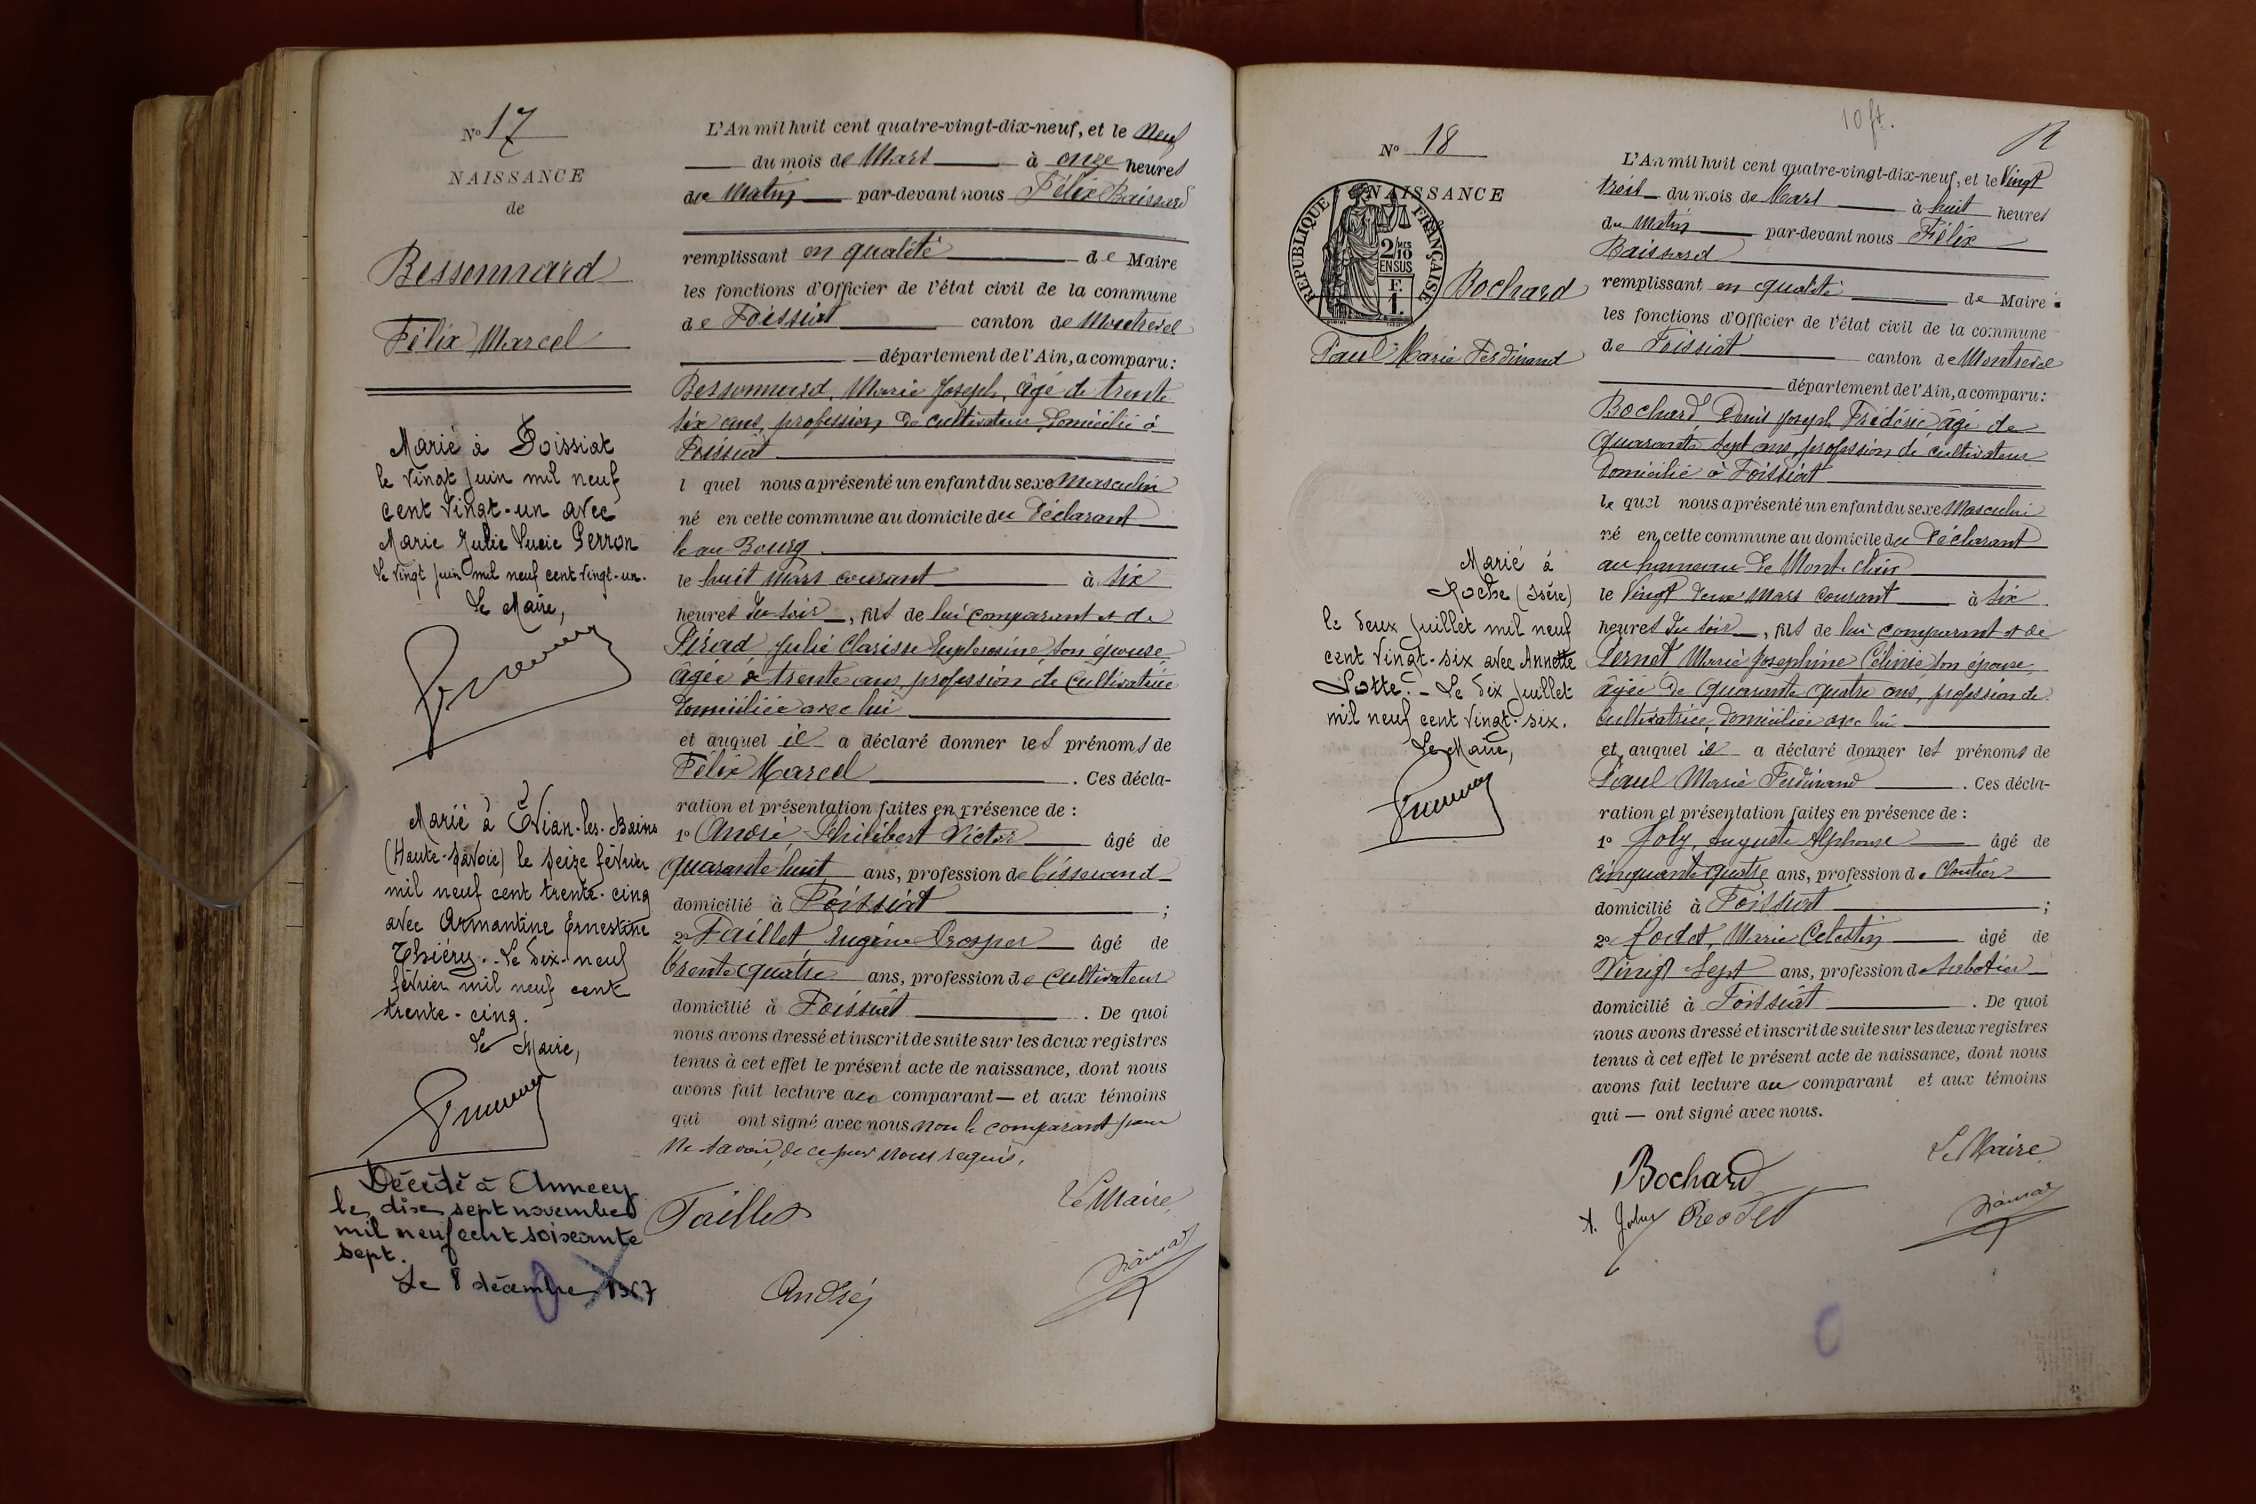 Nº 17
NAISSANCE
de
Bessonnard
Félix Marcel
Marié à Foissiat
le vingt juin mil neuf
cent vingt-un avec
Marie Julie Lucie Perron
Le vingt juin mil neuf cent vingt-un.
Le Maire,
Marié à Evian-les-Bains
(Haute-Savoie) le seize février
mil neuf cent trente-cinq
avec Armantine Ernestine
Thiéry. - Le dix-neuf
février mil neuf cent
trente-cinq.
Le Maire,
Décédé à Annecy
le dix sept novembre
mil neuf cent soixante
sept.
Le 8 décembre 1967
L'An mil huit cent quatre-vingt-dix-neuf, et le Neuf
du mois de Mars à onze heures
du Matin par-devant nous Félix Baissard
remplissant en qualité de Maire
les fonctions d'Officier de l'état civil de la commune
de Foissiat canton de Montrevel
département de l'Ain, a comparu:
Bessonnard, Marie Joseph, âgé de trente
six ans, profession de cultivateur, domicilié à
Foissiat
l quel nous a présenté un enfant du sexe Masculin
né en cette commune au domicile du Déclarant
au Bourg
le huit Mars courant à six
heures du soir, fils de lui comparant et de
Julie Clarisse son épouse
âgée de trente ans profession de cultivatrice
domiciliée avec lui
et auquel il a déclaré donner les prénoms de
Félix Marcel. Ces décla-
ration et présentation faites en présence de :
1º André, Philibert Victor âgé de
quarante huit ans, profession de Tisserand
domicilié à Foissiat ;
2º Faillet, Eugène Prosper âgé de
trente quatre ans, profession de cultivateur
domicilié à Foissiat. De quoi
nous avons dressé et inscrit de suite sur les deux registres
tenus à cet effet le présent acte de naissance, dont nous
avons fait lecture au comparant — et aux témoins
qui ont signé avec nous non le comparant pour
ne savoir, de ce par nous requis.
Faillet
Le Maire,
André
10 ft.
Nº 18
NAISSANCE
RÉPUBLIQUE FRANÇAISE
2/10 MES
EN SUS
F.
1.
Bochard
Paul Marie Ferdinand
Marié à
Roche (Isère)
le deux juillet mil neuf
cent vingt-six avec Annette
Le dix juillet
mil neuf cent vingt-six.
Le Maire,
L'An mil huit cent quatre-vingt-dix-neuf, et le Vingt
trois du mois de Mars à huit heures
du Matin par-devant nous Félix
Baissard
remplissant en qualité de Maire
les fonctions d'Officier de l'état civil de la commune
de Foissiat canton de Montrevel
département de l'Ain, a comparu:
Bochard Denis Joseph Frédéric âgé de
quarante sept ans, profession de cultivateur
domicilié à Foissiat
le quel nous a présenté un enfant du sexe Masculin
né en cette commune au domicile du Déclarant
au hameau de Mont-clair
le vingt deux Mars courant à six
heures du soir, fils de lui comparant et de
Pernet Marie Josephine Célinie son épouse,
âgée de quarante quatre ans, profession de
cultivatrice, domiciliée avec lui
et auquel il a déclaré donner les prénoms de
Paul Marie Ferdinand. Ces décla-
ration et présentation faites en présence de :
1º Joly, Auguste Alphonse âgé de
cinquante quatre ans, profession de Cloutier
domicilié à Foissiat ;
2º Rodet, Marie Celestin âgé de
Vingt sept ans, profession de sabotier
domicilié à Foissiat. De quoi
nous avons dressé et inscrit de suite sur les deux registres
tenus à cet effet le présent acte de naissance, dont nous
avons fait lecture au comparant et aux témoins
qui — ont signé avec nous.
Le Maire
Bochard
Joly Rodet